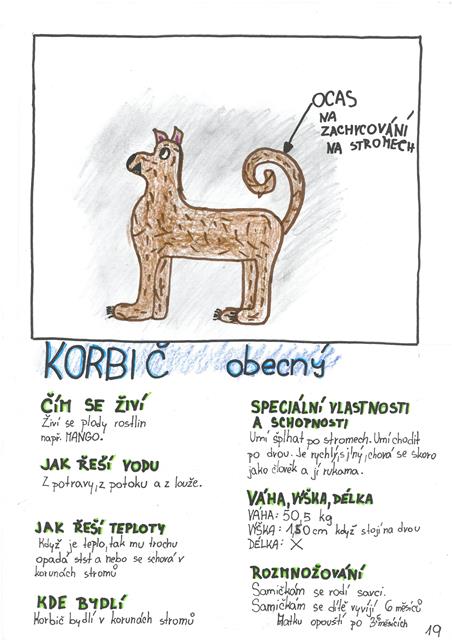 OCAS
NA
ZACHYCOVÁNÍ
NA STROMECH
KORBIČ obecný
ČÍM SE ŽIVÍ
Živí se plody rostlin
např. MANGO.
JAK ŘEŠÍ VODU
Z potravy, z potoku a z louže.
JAK ŘEŠÍ TEPLOTY
Když je teplo, tak mu trochu
opadá srst a nebo se schová v
korunách stromů
KDE BYDLÍ
Korbič bydlí v korunách stromů
SPECIÁLNÍ VLASTNOSTI
A SCHOPNOSTI
Umí šplhat po stromech. Umí chodit
po dvou. Je rychlý, silný, chová se skoro
jako člověk a jí rukama.
VÁHA, VÝŠKA, DÉLKA
VÁHA: 50,5 kg
VÝŠKA: 150cm když stojí na dvou
DÉLKA: X
ROZMNOŽOVÁNÍ
Samičkám se rodí savci.
Samičkám se dítě vyvíjí 6 měsíců
Matku opouští po měsících
19